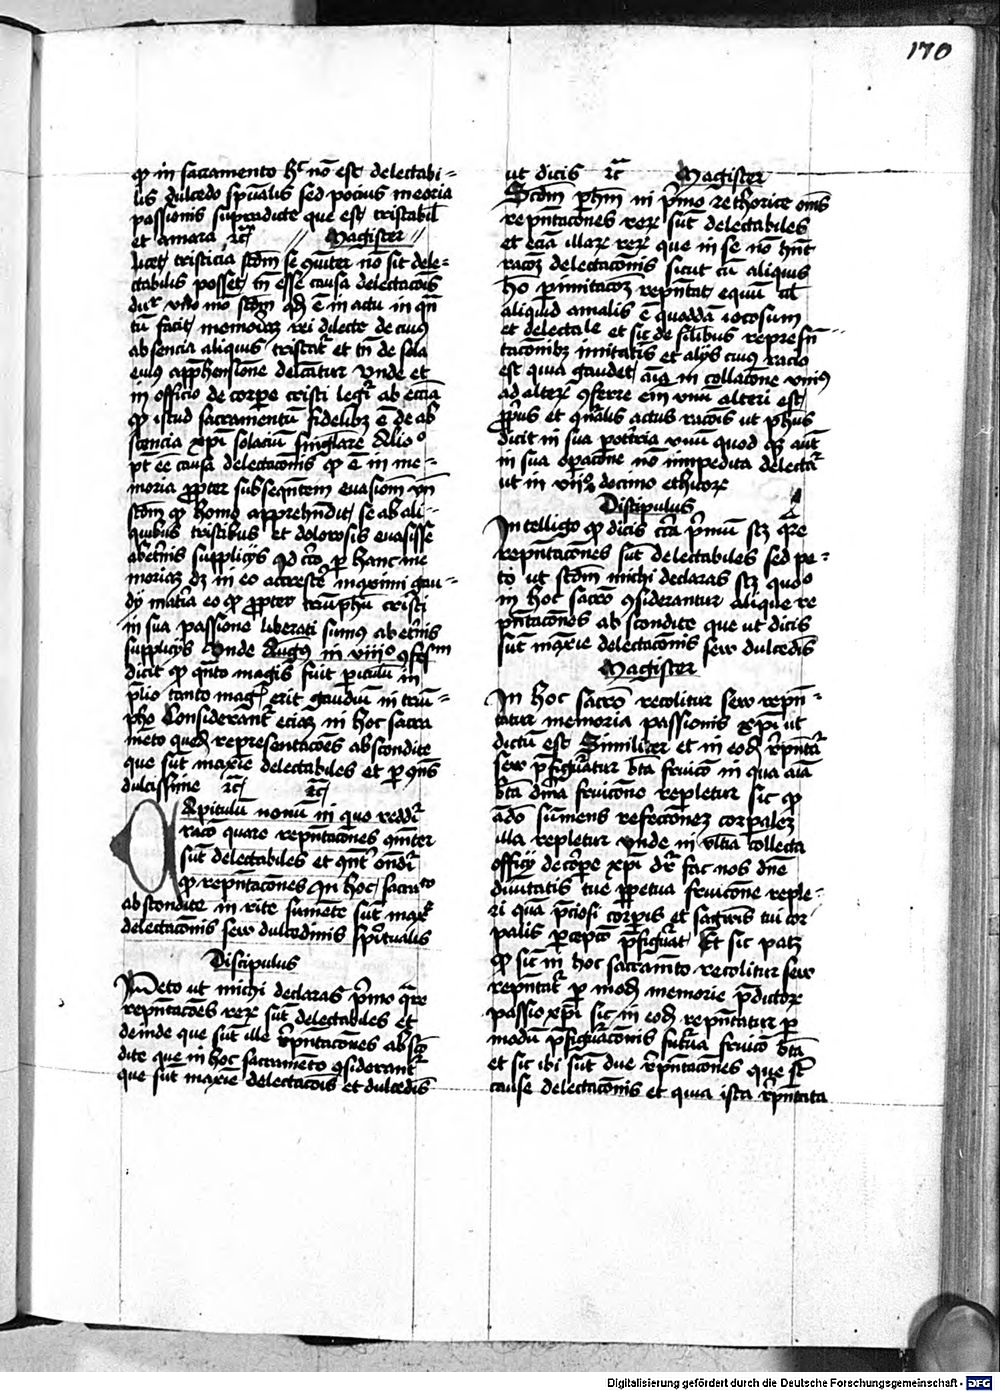 170
ꝙ in sacramento hͦ nō est delectabi=
lis dulcedo spūalis sed pocius meōria
passionis supradicte que est tristabil̄
et amara ⁊cͣ Magister
licet tristicia scdm̄ se ꝯiūter nō sit dele=
ctabilis posset tn̄ esse causa delectacōis
du vno mō scdm̄ qd̄ ē in actu in qn̄
tū facit memoriaꝫ rei dilecte de cuiꝰ
absencia aliquis tristat᷑ et tn̄ de sola
eius appͪhensione delcātur vnde et
in officio de corpore cristi legi᷑ ab eccīa
ꝙ istud sacramentū fidelibꝫ ē de ab
sencia xp̄i solaciū singlare Alio ͦ
pt̄ eē causa delectacōnis ꝙ ē in me=
moria ꝓpter subseqn̄tem euasionē vn̄
scdm̄ ꝙ homo apprehn̄dit se ab ali=
quibus tristibus et dolorosis euasisse
abet̄nis supplicijs qd ꝑ hanc me
moriaꝫ in eo accrescit maximi gau=
dij mat̄ia eo ꝙ ꝓpter triūphū cristi
in sua passione liberati sumus abet̄nis
supplicijs Vnde Augꝰ in viii ͦ ꝯfess̄m
dicit ꝙ qn̄to magis fuit ꝑiculū in
p̄lio tanto magͥ erit gaudiū in triū=
pho Considerant᷑ eciaꝫ in hoc sacra
mēto quedā representacōēs abscondite
que sūt maxīe delectabiles et ꝑ ꝯn̄s
dulcissime ⁊cͣ ⁊cͣ
Capitulū nonū in quo reddi᷑
racō quare repn̄tacōnes ꝯiūter
sūt delectabiles et ꝯn̄t᷑ ondi᷑
ꝙ repn̄tacōnes in hoc sacrā to
abscondite in rite sumēte sūt maxͤ
delectacōnis seu dulcedinis spūtualis
Discipulus
Peto ut michi declaras pͥmo qͣre
repn̄tacōēs reꝝ sūt delectabiles et
deinde que sūt ille rͤpn̄tacōnes absco᷑
dite que in hoc sacramēto ꝯsiderant᷑
que sūt maxīe delectacōis et dulcedīs
ut dicis ⁊cͣ Magister
Scdm̄ phm̄ in pͥmo rethorice om̄s
repn̄tacōnes reꝝ sūt delectabiles
et eciā illaꝝ reꝝ que in se nō hn̄t
racōꝫ delectacōnis sicut cū aliquis
hō ꝑ imitacōꝫ repn̄tat equū ul̄
aliquid amalis ē quoddā iocosum
et delectale et sic de sil̄ibus represn̄
tacōnibꝫ imitatis et alijs cuiꝰ racio
est quia gaudet aīa in collacōne vniꝰ
ad alteꝝ ꝯferre em̄ vnū alteri est
ꝓpͥus et qn̄alis actus racōis ut phūs
dicit in sua poetria vnū quod qꝫ aūt
in sua opacōne nō impedita delectat᷑
ut in viiͦ decimo ethicoꝝ
Discipulus
Intelligo ꝙ dicis circa pͥmū scꝫ qͣre
repn̄tacōnes sūt delectabiles sed pe=
to ut scdm̄ michi declaras scꝫ quōo
in hoc sacrō ꝯsiderantur alique re
pn̄tacōnes abscondite que ut dicis
sūt maxīe delectacōnis seu dulcedīs
Magister
In hoc sacrō recolitur seu repn̄=
tatur memoria passionis xp̄i ut
dictū est Similiter et in eodē rͤpn̄tat᷑
seu pͤfiguratur bt̄a fruicō in qua aīa
bt̄a dīna fruicōne repletur sic ꝙ
adō sūmens refectionez corꝑalez
illa repletur vnde in vltīa collecta
officij de corꝑe xp̄i d᷑r fac nos dn̄e
diuītatis tue ꝑpetua fruicōne reple=
ri quā pͥciosi corꝑis et sāgwīs tui cor
palis ꝑcepcō pͤfigurat Et sic patꝫ
ꝙ sic in hoc sacramēto recolitur seu
repn̄tat᷑ ꝑ modū memorie pͤdictoꝝ
passio xp̄i sic in eodē repn̄tatur ꝑ
modū pͤfiguracōnis futura fruicō bt̄a
et sic ibi sūt due rͤpn̄tacōnes que sūt
cause delectacōnis et quia ista rͤpn̄tata
Digitalisierung gefördert durch die Deutsche Forschungsgemeinschaft - DFG